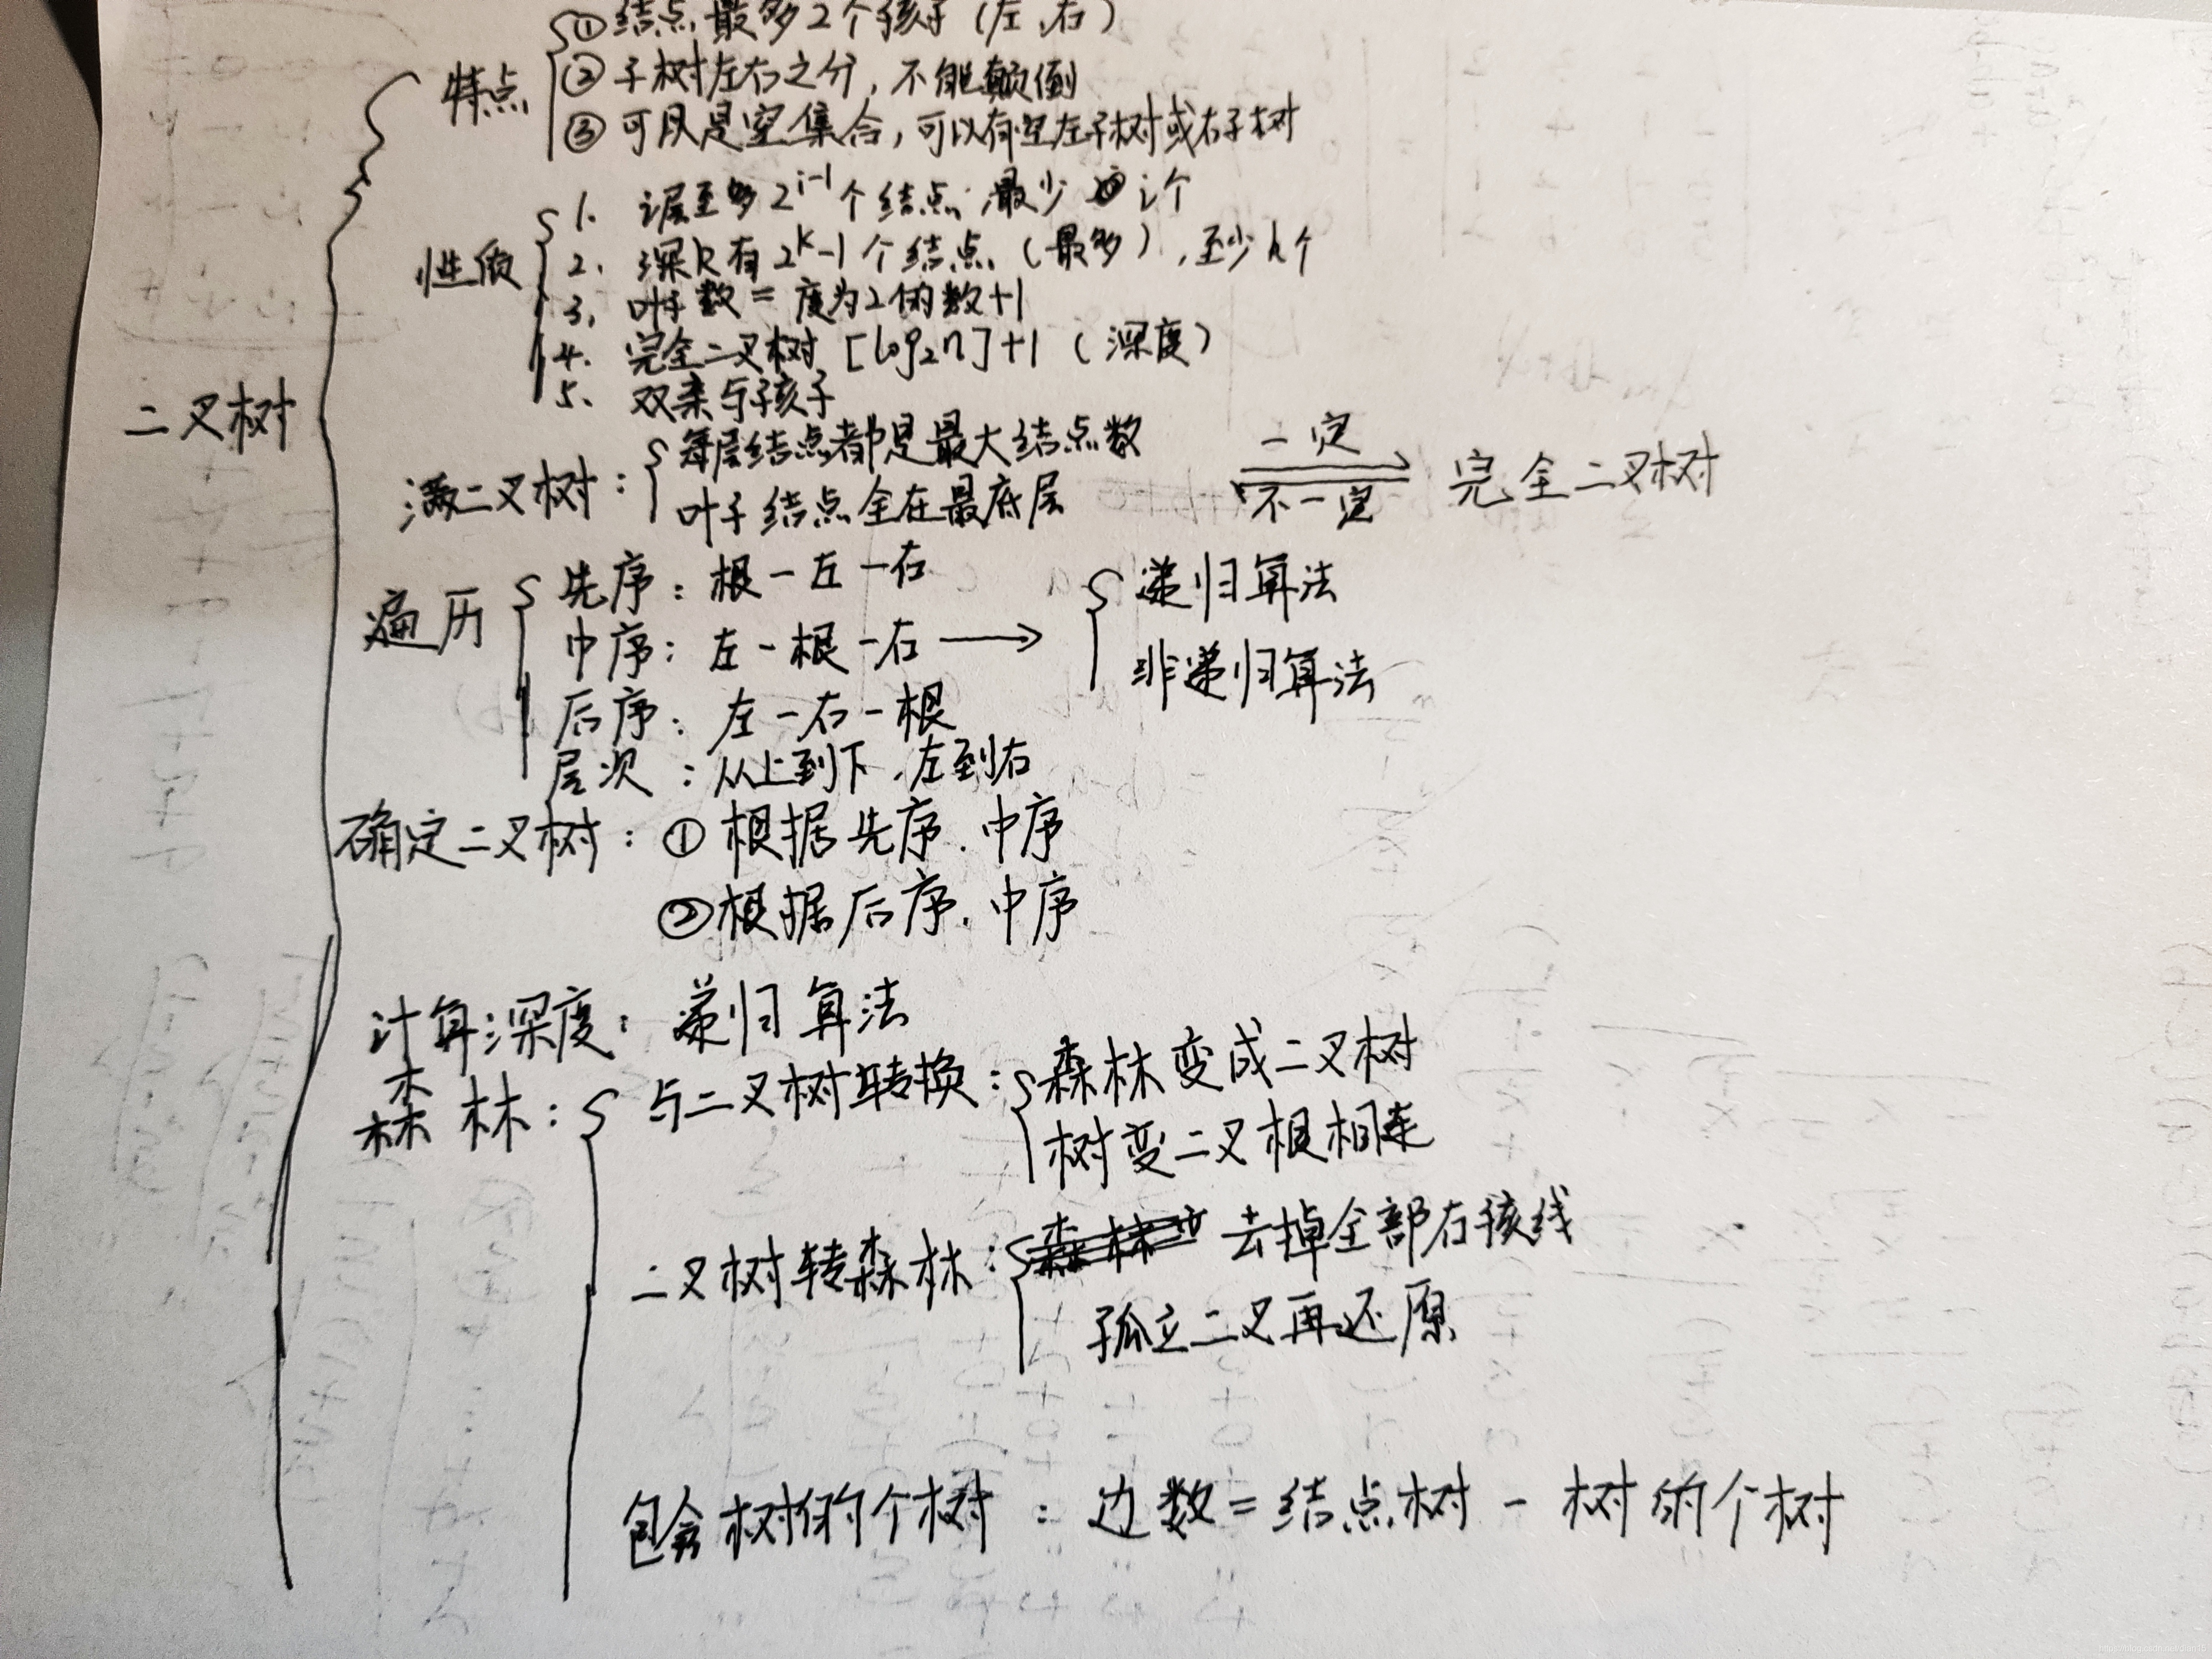 二叉树
特点
①结点最多2个孩子(左,右)
②子树左右之分,不能颠倒
③可以是空集合,可以有空左子树或右子树
性质
1. i层至多2^{i-1}个结点;最少 i个
2. 深k有2^k-1个结点(最多),至少k个
3. 叶子数=度为2的数+1
4. 完全二叉树 [log₂n]+1(深度)
5. 双亲与孩子
满二叉树:
每层结点都是最大结点数
叶子结点全在最底层
一定
不一定
完全二叉树
遍历
先序:根-左-右
中序:左-根-右 →
后序:左-右-根
层次:从上到下,左到右
递归算法
非递归算法
确定二叉树:①根据先序.中序
②根据后序.中序
计算深度:递归算法
森林:
与二叉树转换:
森林变成二叉树
树变二叉根相连
二叉树转森林:
去掉全部右孩线
孤立二叉再还原
包含树的个树:边数=结点树-树的个树